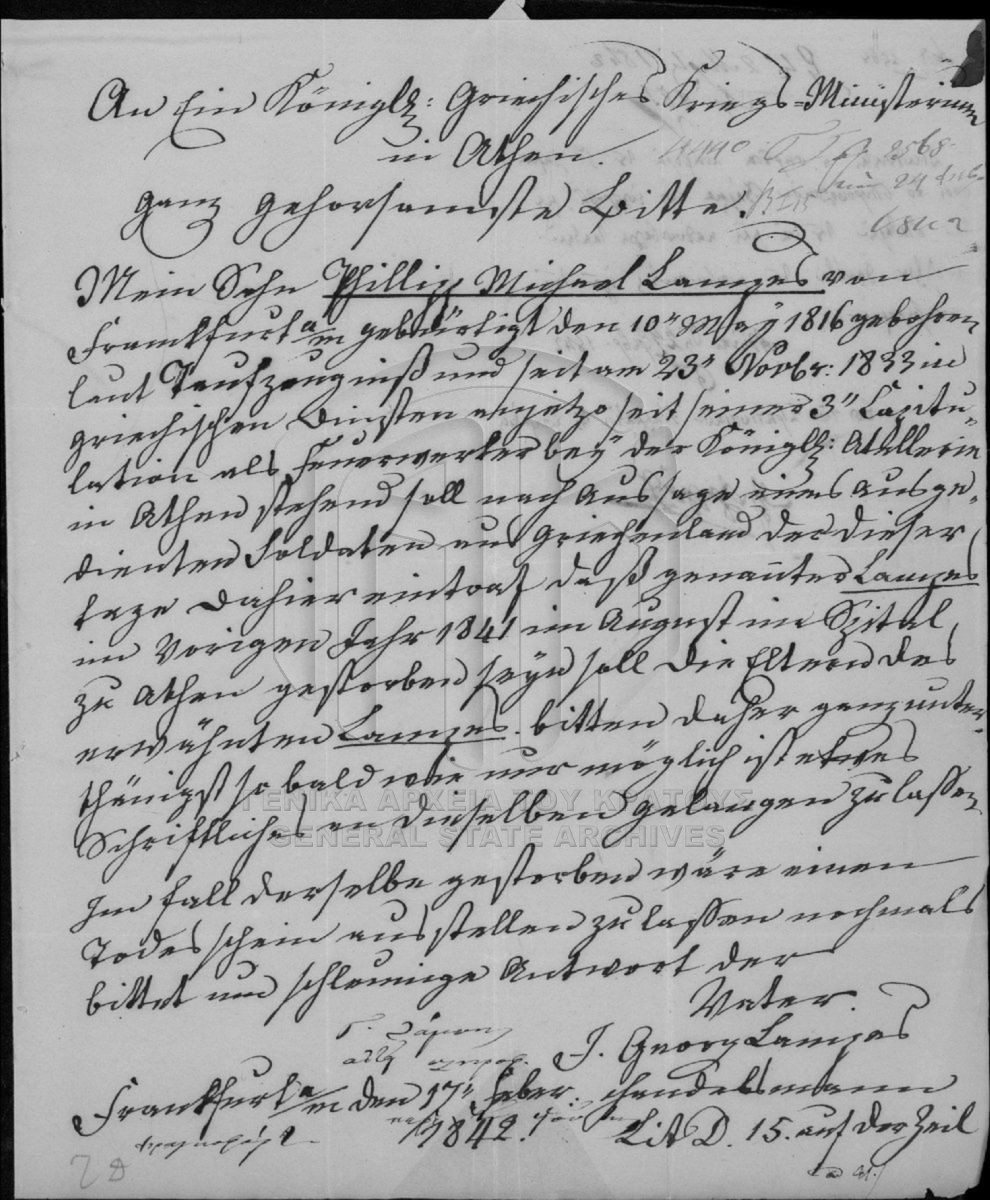 An Ein Königlh: Griechisches Kriegs-Ministerium
in Athen.
ganz gehorsamste Bitte.
Mein Sohn Phillip Michael Lampes von
Frankfurt a/m gebürtigt den 10" May 1816 gebohren
laut Taufzeugniß und seit am 23" Novbr: 1833 in
griechischen Dinsten anjetzo seit seiner 3" Capitu-
lation als Feuerwerker bey der Königlh: Atillerie
in Athen stehend soll nach Aussage eines ausge-
dienten Soldaten aus Griechenland der dieser
tage dahier eintraf daß genannter Lampes
im Vorigen Jahr 1841 im August im Spital
zu Athen gestorben seyn soll die Eltern des
erwähnten Lampes bitten daher ganz unter-
thänigst so bald wie nur möglich ist etwas
Schriftliches an dieselben gelangen zu lassen
Im fall derselbe gestorben wäre einen
Todesschein ausstellen zu lassen nochmals
bittet um schleunige Antwort der
Vater
J. Georg Lampes
Frankfurt a/m den 17" Feber: Handelsmann
1842. Lit D. 15. auf der Zeil
ΓΕΝΙΚΑ ΑΡΧΕΙΑ ΤΟΥ ΚΡΑΤΟΥΣ
GENERAL STATE ARCHIVES